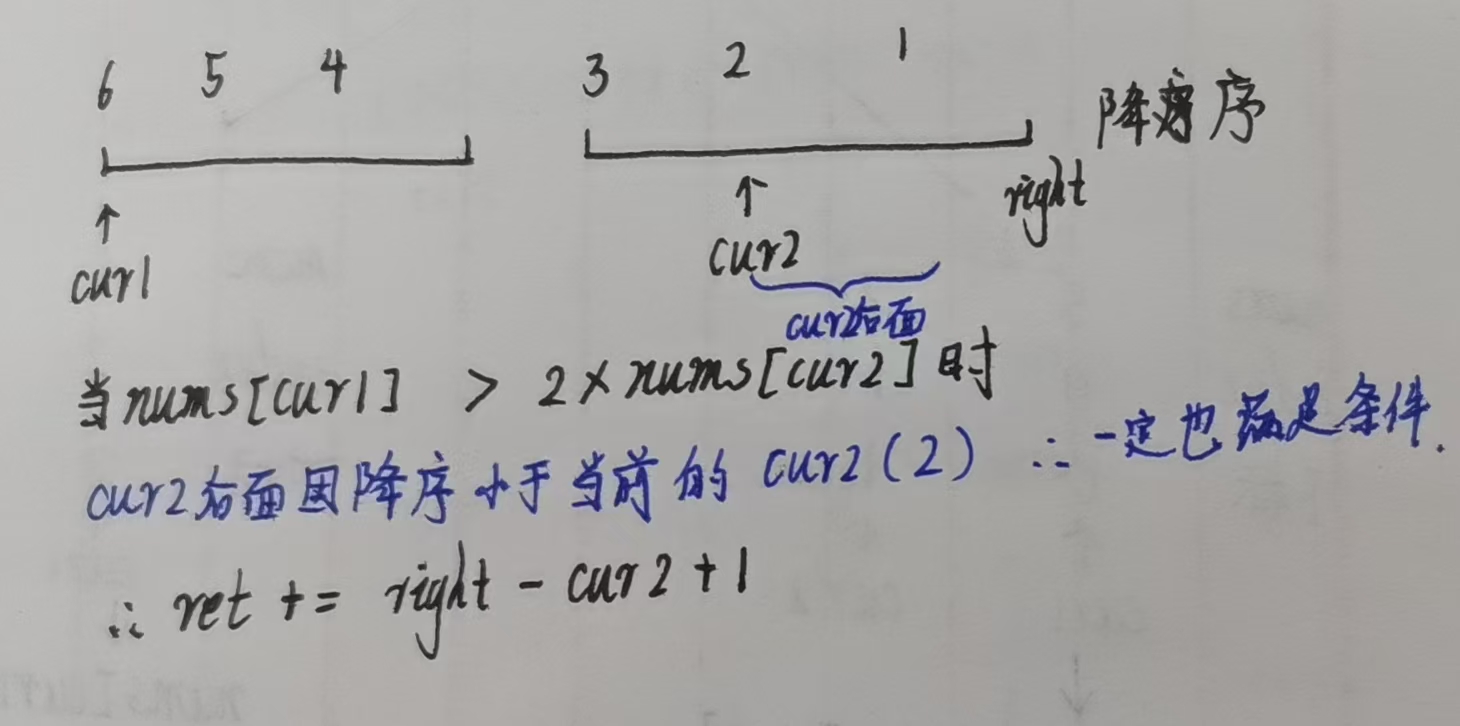 6 5 4 3 2 1
降序
right
cur1
cur2
cur2右面
当nums[cur1] > 2×nums[cur2]时
cur2右面因降序小于当前的cur2(2) ∴一定也满足条件.
∴ ret += right - cur2+1